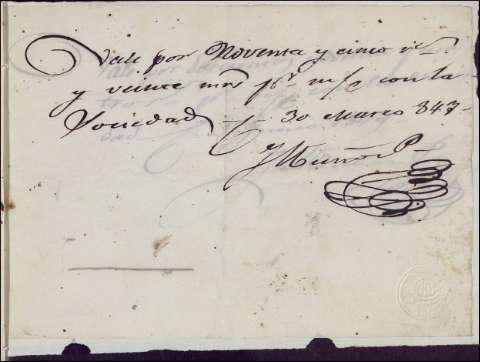 Vale por Noventa y cinco rs
y veinte mrs pr m/c con la
Sociedad 30 Marzo 847
J Muñoz